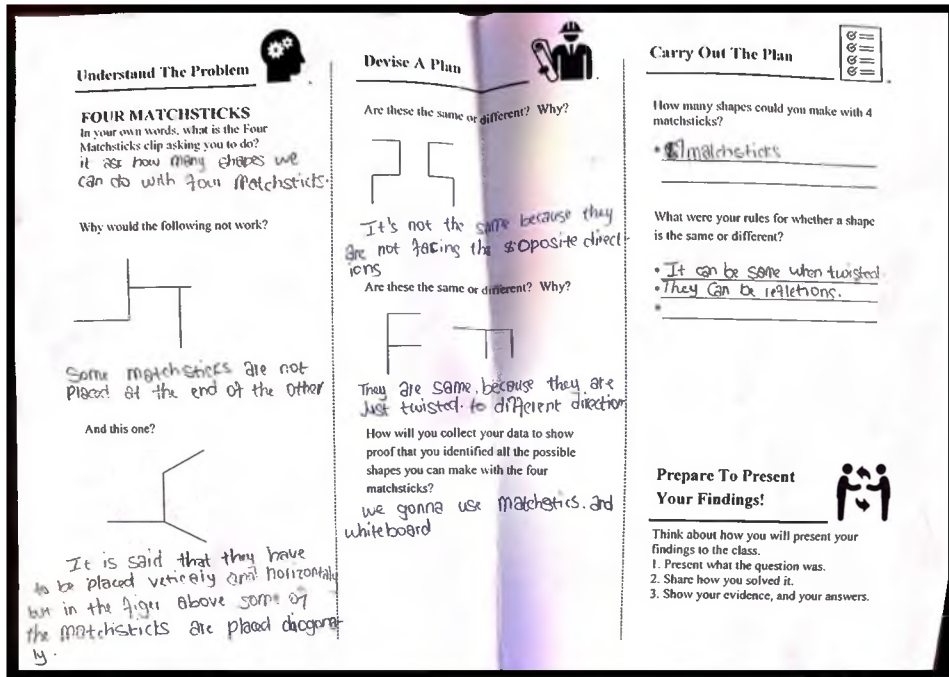 Understand The Problem
FOUR MATCHSTICKS
In your own words, what is the Four
Matchsticks clip asking you to do?
it ask how many shapes we
can do with four Matchsticks.
Why would the following not work?
Some matchsticks are not
placed at the end of the other
And this one?
It is said that they have
to be placed veticaly and horizontaly
but in the figer above some of
the matchsticks are placed diagonat
ly.
Devise A Plan
Are these the same or different? Why?
It's not the same because they
are not facing the oposite direct-
ions
Are these the same or different? Why?
They are same. because they are
Just twisted. to different direction
How will you collect your data to show
proof that you identified all the possible
shapes you can make with the four
matchsticks?
we gonna use matchstics. and
whiteboard
Carry Out The Plan
How many shapes could you make with 4
matchsticks?
• matchsticks
What were your rules for whether a shape
is the same or different?
• It can be same when twisted.
• They Can be refletions.
•
Prepare To Present
Your Findings!
Think about how you will present your
findings to the class.
1. Present what the question was.
2. Share how you solved it.
3. Show your evidence, and your answers.